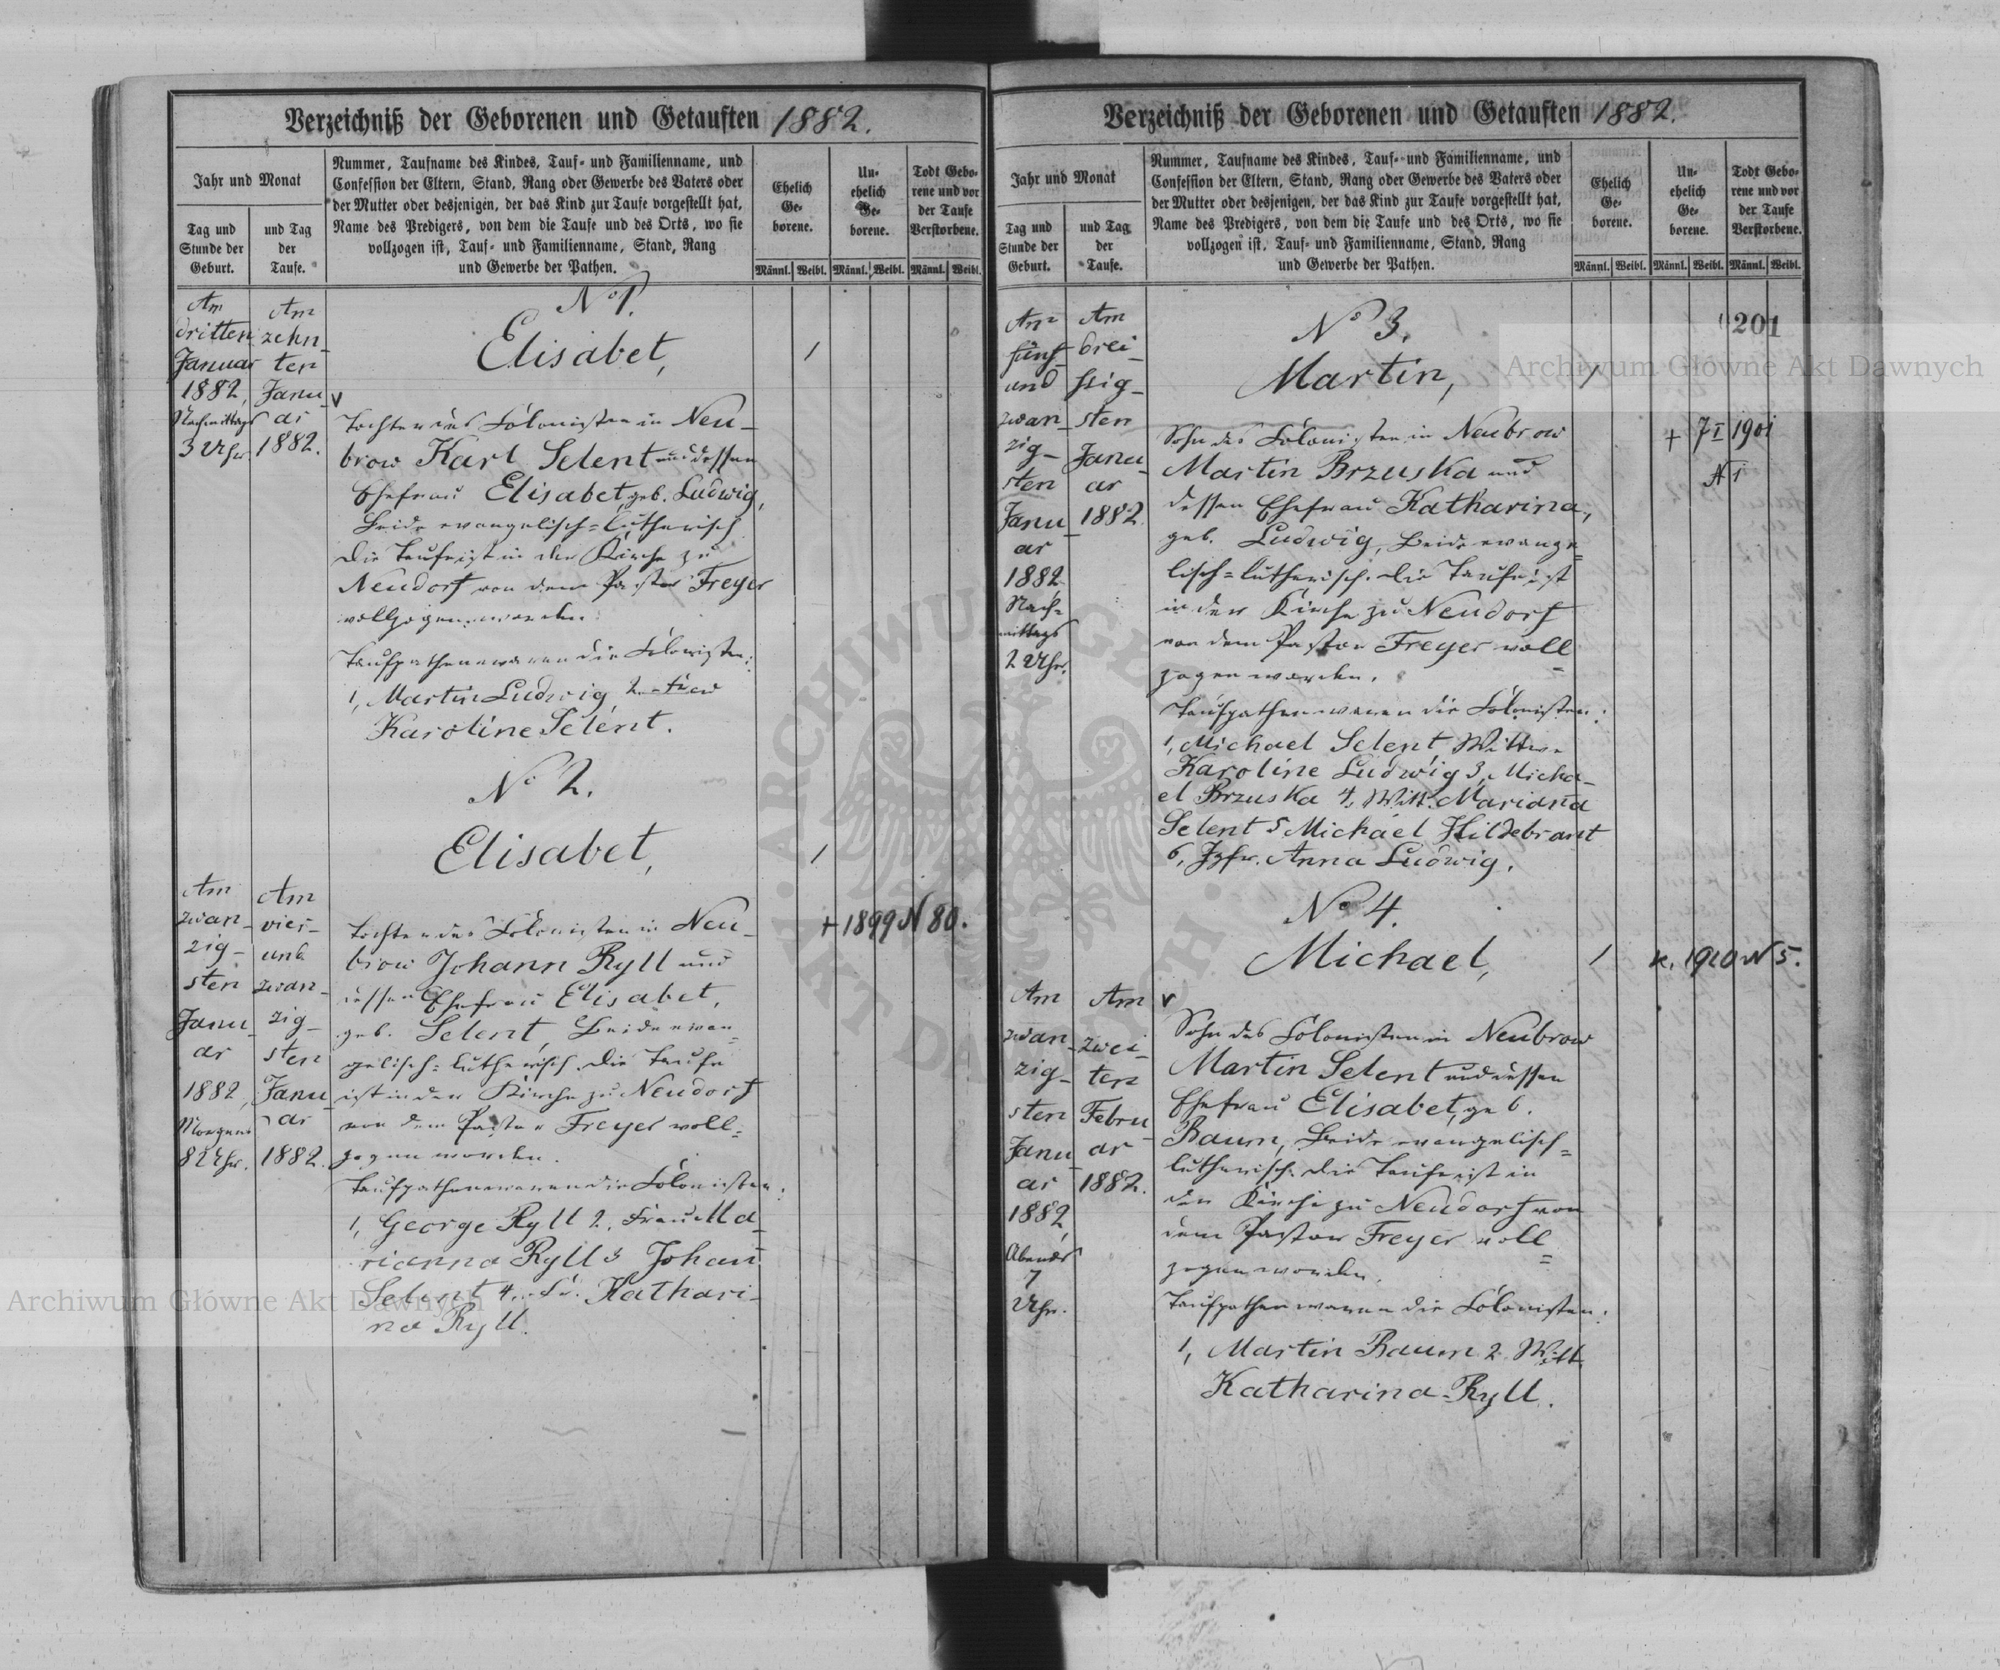 Verzeichniß der Geborenen und Getauften 1882.
Jahr und Monat
Tag und
Stunde der
Geburt.
und Tag
der
Taufe.
Nummer, Taufname des Kindes, Tauf- und Familienname, und
Confession der Eltern, Stand, Rang oder Gewerbe des Vaters oder
der Mutter oder desjenigen, der das Kind zur Taufe vorgestellt hat,
Name des Predigers, von dem die Taufe und des Orts, wo sie
vollzogen ist, Tauf- und Familienname, Stand, Rang
und Gewerbe der Pathen.
Ehelich
Ge-
borene.
Un-
ehelich
Ge-
borene.
Todt Gebo-
rene und vor
der Taufe
Verstorbene.
Männl. Weibl. Männl. Weibl. Männl. Weibl.
Am
dritten
Januar
1882,
Nachmittags
3 Uhr.
Am
zehn-
ten
Janu-
ar
1882.
No 1.
Elisabet,
Tochter des Colonisten in Neu-
brow Karl Selent und dessen
Ehefrau Elisabet, geb. Ludwig,
Beide evangelisch-lutherisch
Die Taufe ist in der Kirche zu
Neudorf von dem Pastor Freyer
vollzogen worden.
Taufpathen waren die Colonisten:
1, Martin Ludwig 2
Karoline Selent.
No 2.
Elisabet,
Am
zwan-
zig-
sten
Janu-
ar
1882,
Morgens
8 Uhr.
Am
vier-
und
zwan-
zig-
sten
Janu-
ar
1882.
Tochter des Colonisten in Neu-
brow Johann Ryll und
dessen Ehefrau Elisabet,
geb. Selent, Beide evan=
gelisch=lutherisch. Die Taufe
ist in der Kirche zu Neudorf
von dem Pastor Freyer voll=
zogen worden.
Taufpathen waren die Colonisten:
1, George Ryll 2, Frau Ma-
rianna Ryll 3 Johann
Selent 4, Kathari-
na Ryll.
+ 1899 N 80.
Verzeichniß der Geborenen und Getauften 1882.
Jahr und Monat
Tag und
Stunde der
Geburt.
und Tag
der
Taufe.
Nummer, Taufname des Kindes, Tauf- und Familienname, und
Confession der Eltern, Stand, Rang oder Gewerbe des Vaters oder
der Mutter oder desjenigen, der das Kind zur Taufe vorgestellt hat,
Name des Predigers, von dem die Taufe und des Orts, wo sie
vollzogen ist, Tauf- und Familienname, Stand, Rang
und Gewerbe der Pathen.
Ehelich
Ge-
borene.
Un-
ehelich
Ge-
borene.
Todt Gebo-
rene und vor
der Taufe
Verstorbene.
Männl. Weibl. Männl. Weibl. Männl. Weibl.
201
Am
fünf-
und
zwan-
zig-
sten
Janu-
ar
1882
Nach-
mittags
2 Uhr.
Am
drei-
ßig-
sten
Janu-
ar
1882.
No 3.
Martin,
Sohn des Colonisten in Neubrow
Martin Brzuska und
dessen Ehefrau Katharina,
geb. Ludwig, Beide evange=
lisch=lutherisch. Die Taufe ist
in der Kirche zu Neudorf
von dem Pastor Freyer voll=
zogen worden.
Taufpathen waren die Colonisten:
1, Michael Selent Wittwe
Karoline Ludwig 3, Micha-
el Brzuska 4, Witt. Marianna
Selent 5 Michael Hildebrant
6, Jgfr. Anna Ludwig.
+ 7 I 1901
N 1
No 4.
Michael,
Am
zwan-
zig-
sten
Janu-
ar
1882,
Abends
7
Uhr.
Am
zwei-
ten
Febru-
ar
1882.
Sohn des Colonisten in Neubrow
Martin Selent und dessen
Ehefrau Elisabet, geb.
Baum, Beide evangelisch=
lutherisch. Die Taufe ist in
der Kirche zu Neudorf von
dem Pastor Freyer voll=
zogen worden.
Taufpathen waren die Colonisten:
1, Martin Baum 2 Witt.
Katharina Ryll.
1910 N 5.
Archiwum Główne Akt Dawnych
Archiwum Główne Akt Dawnych